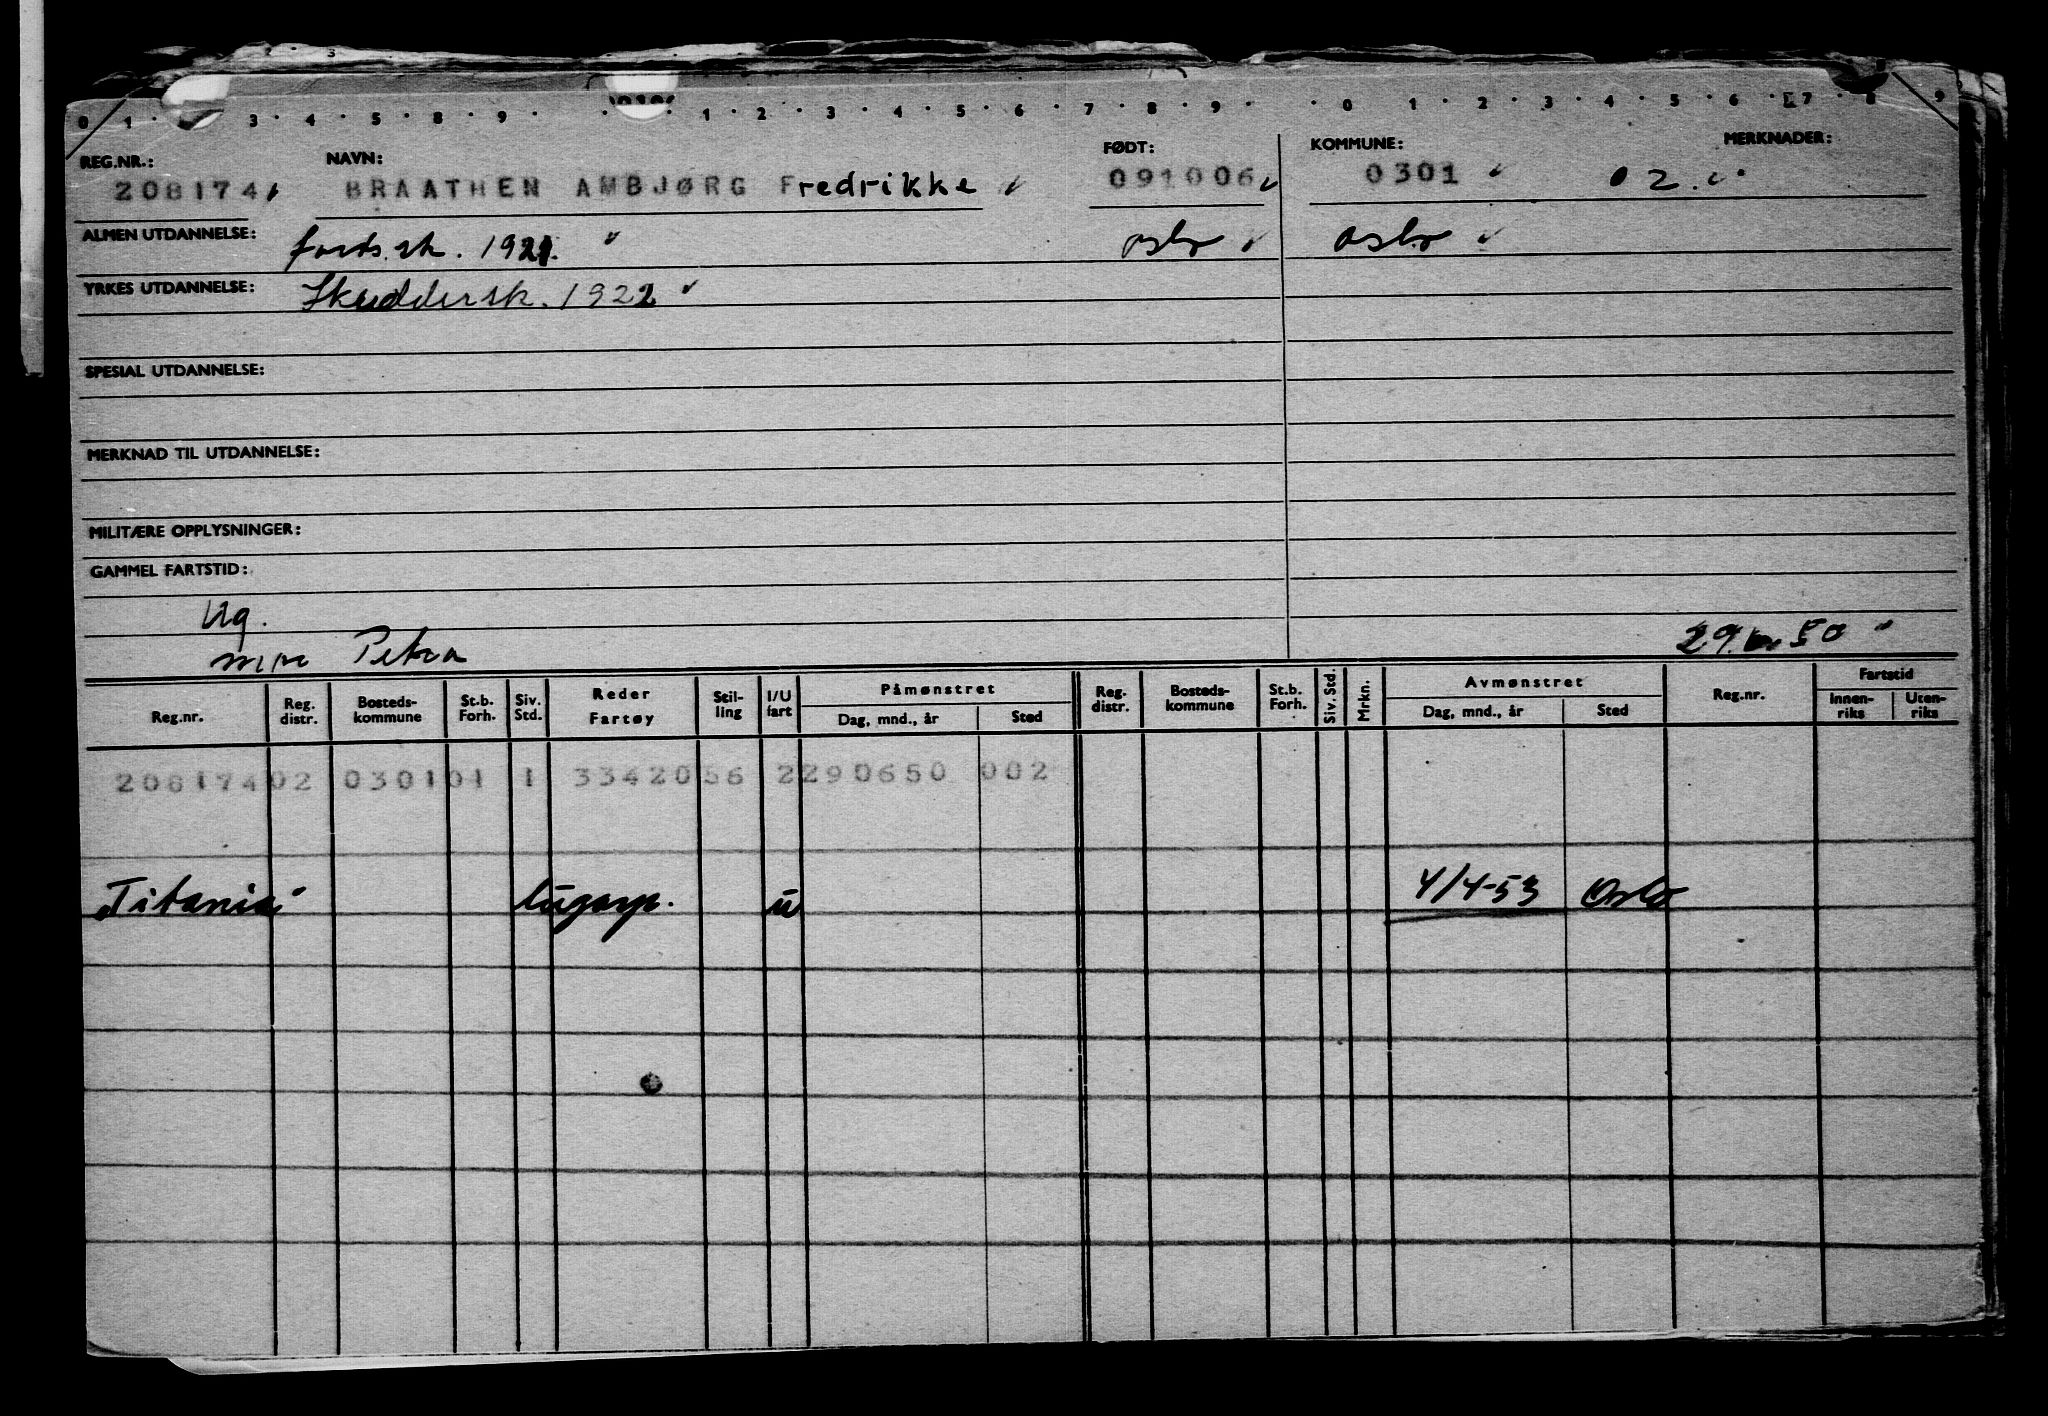 2 · 3
0 1 · 3 · 4 · 5 · 8 · 9 · · · 1 · 2 · 3 · 4 · 5 · 6 · 7 · 8 · 9 · · 0 · 1 · 2 · 3 · 4 · 5 · 6 · 7 · 8 · 9
REG.NR.: NAVN: FØDT: KOMMUNE: MERKNADER:
208174 BRAATHEN AMBJØRG Fredrikke 091006 0301 02.
ALMEN UTDANNELSE: forts.sk. 1921. " Oslo Oslo
YRKES UTDANNELSE: Skreddersk. 1922
SPESIAL UTDANNELSE:
MERKNAD TIL UTDANNELSE:
MILITÆRE OPPLYSNINGER:
GAMMEL FARTSTID:
Ug.
mor Petra 29.6.50 "
Reg.nr. Reg. distr. Bosteds-kommune St.b. Forh. Siv. Std. Reder Fartøy Stil-ling I/U fart Påmønstret Dag, mnd., år Sted Reg. distr. Bosteds-kommune St.b. Forh. Siv. Std. Mrkn. Avmønstret Dag, mnd., år Sted Reg.nr. Fartstid Innen-riks Uten-riks
208174 02 0301 01 1 33420 56 2 290650 002
Titania lugarp. u 4/4-53 Oslo